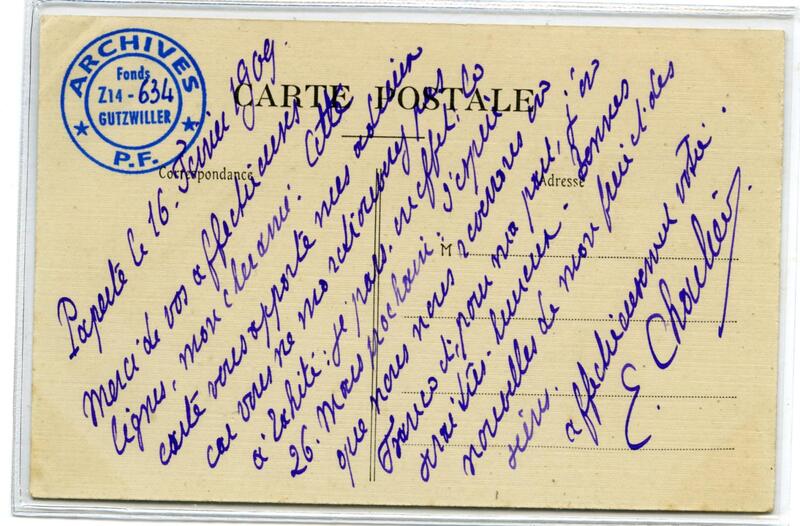 ARCHIVES
Fonds
Z14 - 634
GUTZWILLER
P.F.
CARTE POSTALE
Correspondance
Adresse
M
Papeete le 16 Février 1909.
Merci de vos affectueuses
lignes, mon cher ami. Cette
carte vous apporte mes adieux
car vous ne me retrouverez pas
à Tahiti : je pars, en effet, le
26 Mars prochain ; j'espère
que nous nous reverrons en
France et, pour ma part, j'en
serai très heureux. Donnez
nouvelles de mon fruit et des
affectueusement votre.
E. Charlier